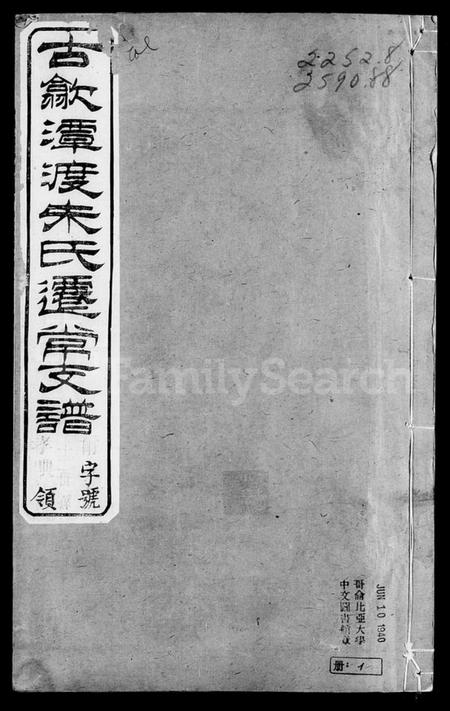 古歙潭渡朱氏遷常支譜
字號
領
col
2252.8
2590.88
FamilySearch
JUN 10 1940
哥倫比亞大學
中文圖書館藏
册: 1